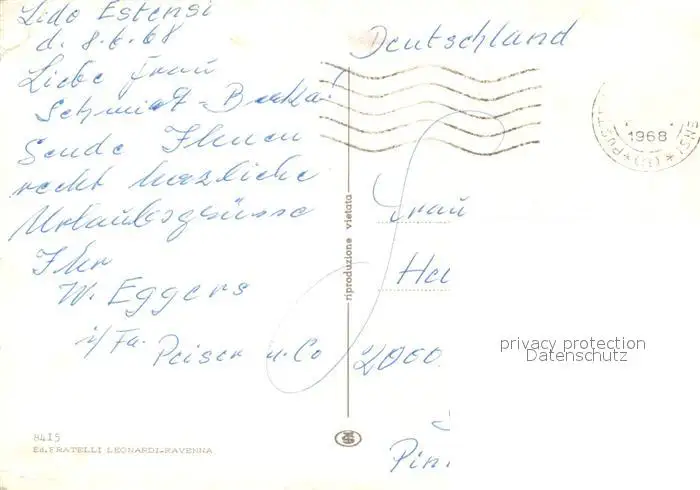 Lido Estensi
d. 8.6.68
Liebe Frau
Schmidt-
Sende Ihnen
recht herzliche
Urlaubsgrüsse
Ihr
W. Eggers
i/Fa. Peiser u. Co
8415
Ed. FRATELLI LEONARDI-RAVENNA
riproduzione vietata
Deutschland
1968
Frau
2000
privacy protection
Datenschutz